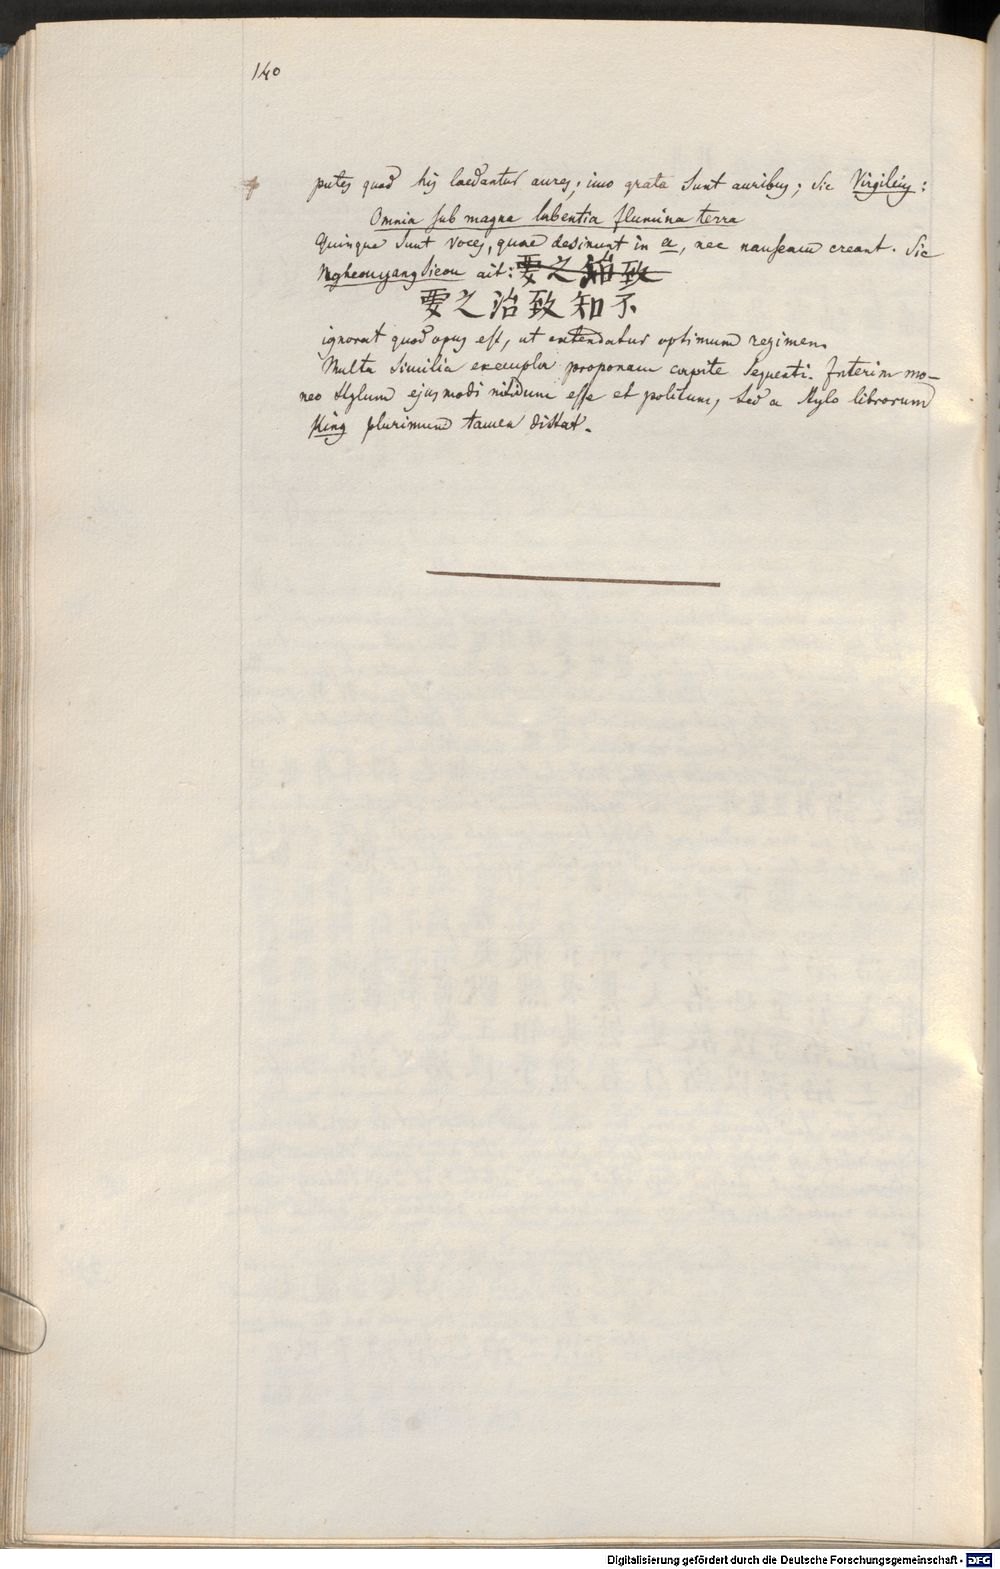 140
putes quod his laedantur aures; imo grata sunt auribus; sic Virgilius:
Omnia sub magna labentia flumina terra
Quinque sunt voces, quae desinunt in a, nec nauseam creant. Sic
Ngheouyangsieou ait: 要之治致
要之治致知不
ignorat quod opus est, ut ostendatur optimum regimen.
Multa similia exempla proponam capite sequenti. Interim mo-
neo stylum ejusmodi nitidum esse et politum, sed a stylo librorum
King plurimum tamen distat.
Digitalisierung gefördert durch die Deutsche Forschungsgemeinschaft - DFG